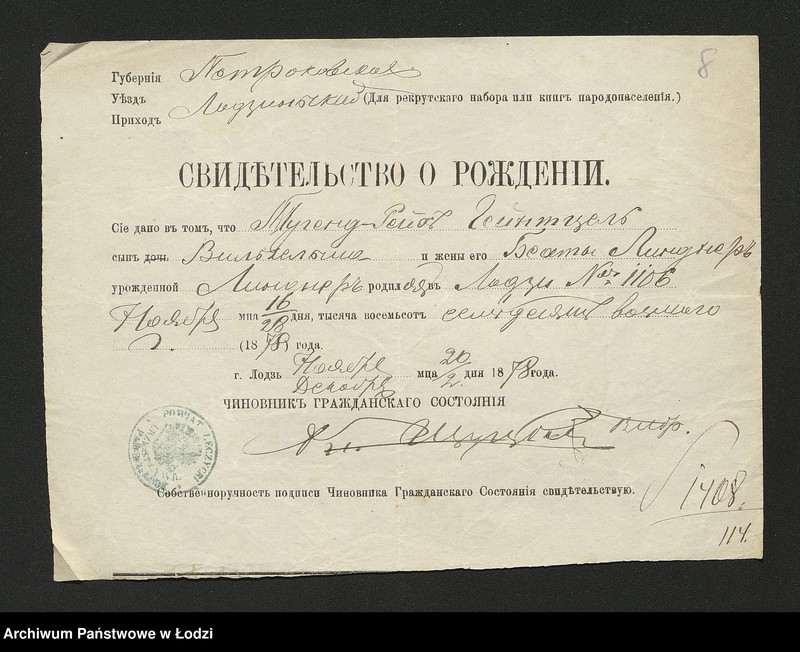 8
Губернія Петроковская
Уѣздъ Лодзинскій (Для рекрутскаго набора или книгъ народонаселенія.)
Приходъ
СВИДѢТЕЛЬСТВО О РОЖДЕНІИ.
Сіе дано въ томъ, что Гейнтцель
сынъ дочь Вильгельма и жены его Беаты Линднеръ
урожденной Линднеръ родился въ Лодзи № 1106
Ноября 16/28 мца дня, тысяча восемьсотъ семьдесятъ восьмого
г. (1878) года.
г. Лодзь Ноября/Декабря мца 20/2 дня 1878 года.
ЧИНОВНИКЪ ГРАЖДАНСКАГО СОСТОЯНІЯ
POWIAT ŁĘCZYCKI
Собственноручность подписи Чиновника Гражданскаго Состоянія свидѣтельствую.
1408.
114.
Archiwum Państwowe w Łodzi